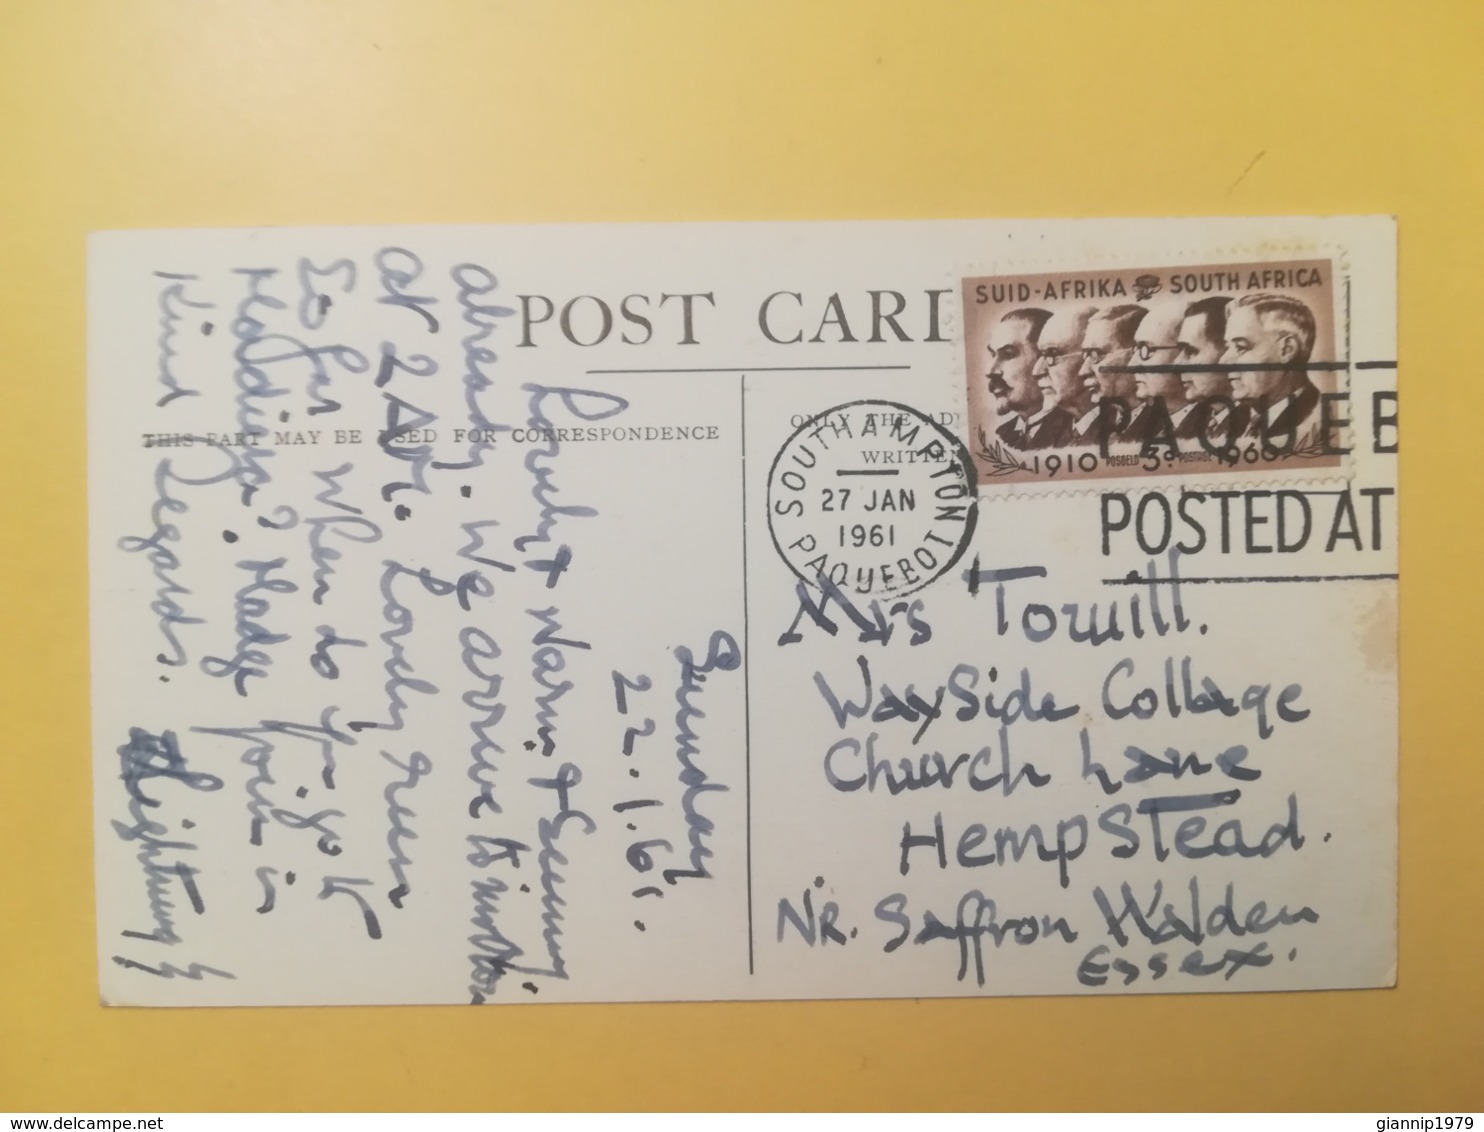 POST CARD
THIS PART MAY BE USED FOR CORRESPONDENCE
ONLY THE AD
WRITTEN
SUID-AFRIKA SOUTH AFRICA
1910 POSGELD 3D POSTAGE 1960
SOUTHAMPTON
27 JAN
1961
PAQUEBOT
PAQUEB
POSTED AT
Sunday
22.1.61.
Lovely & Warm & Sunny
already. We arrive
at 2 Lovely run
So far When do you go to
Madge join in
Kind Regards.
Mrs Towill.
WaySide Cottage
Church Lane
HempStead.
NR. Saffron Walden
Essex.
giannip1979
delcampe.net